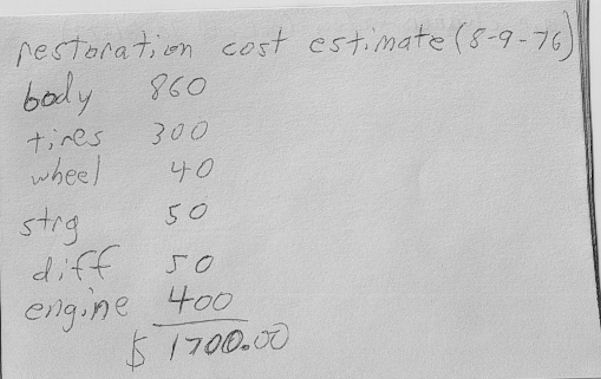 restoration cost estimate (8-9-76)
body 860
tires 300
wheel 40
strg 50
diff 50
engine 400
$ 1700.00